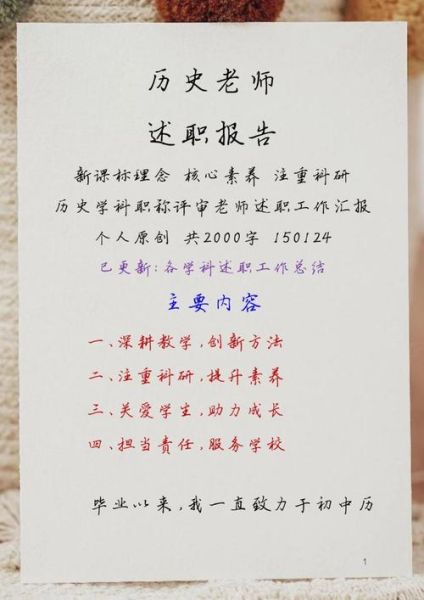 历史老师
述职报告
新课标理念 核心素养 注重科研
历史学科职称评审老师述职工作汇报
个人原创 共2000字 150124
已更新:各学科述职工作总结
主要内容
一、深耕教学,创新方法
二、注重科研,提升素养
三、关爱学生,助力成长
四、担当责任,服务学校
毕业以来,我一直致力于初中历
1